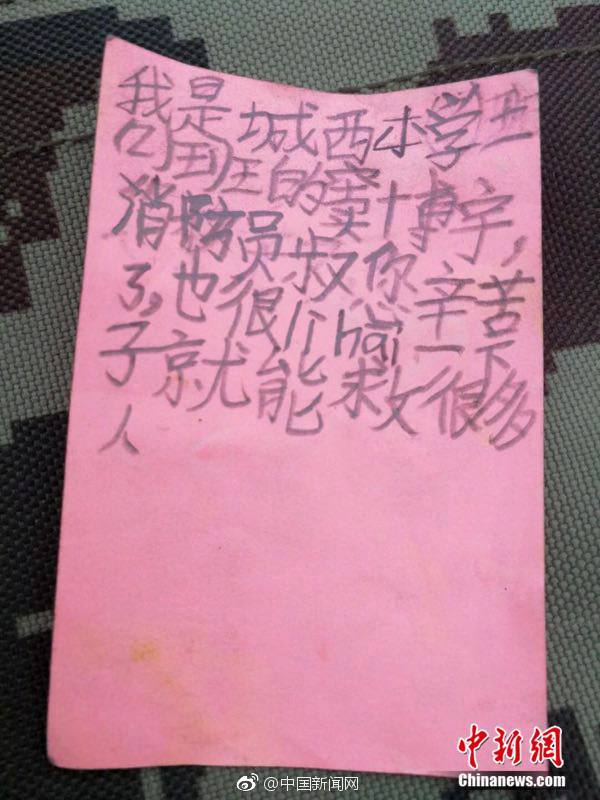 我是城西小学
班的窦博宇,
消防员叔您辛苦
了,也很hai一下
子就能救很多
人
中新网
Chinanews.com
@中国新闻网